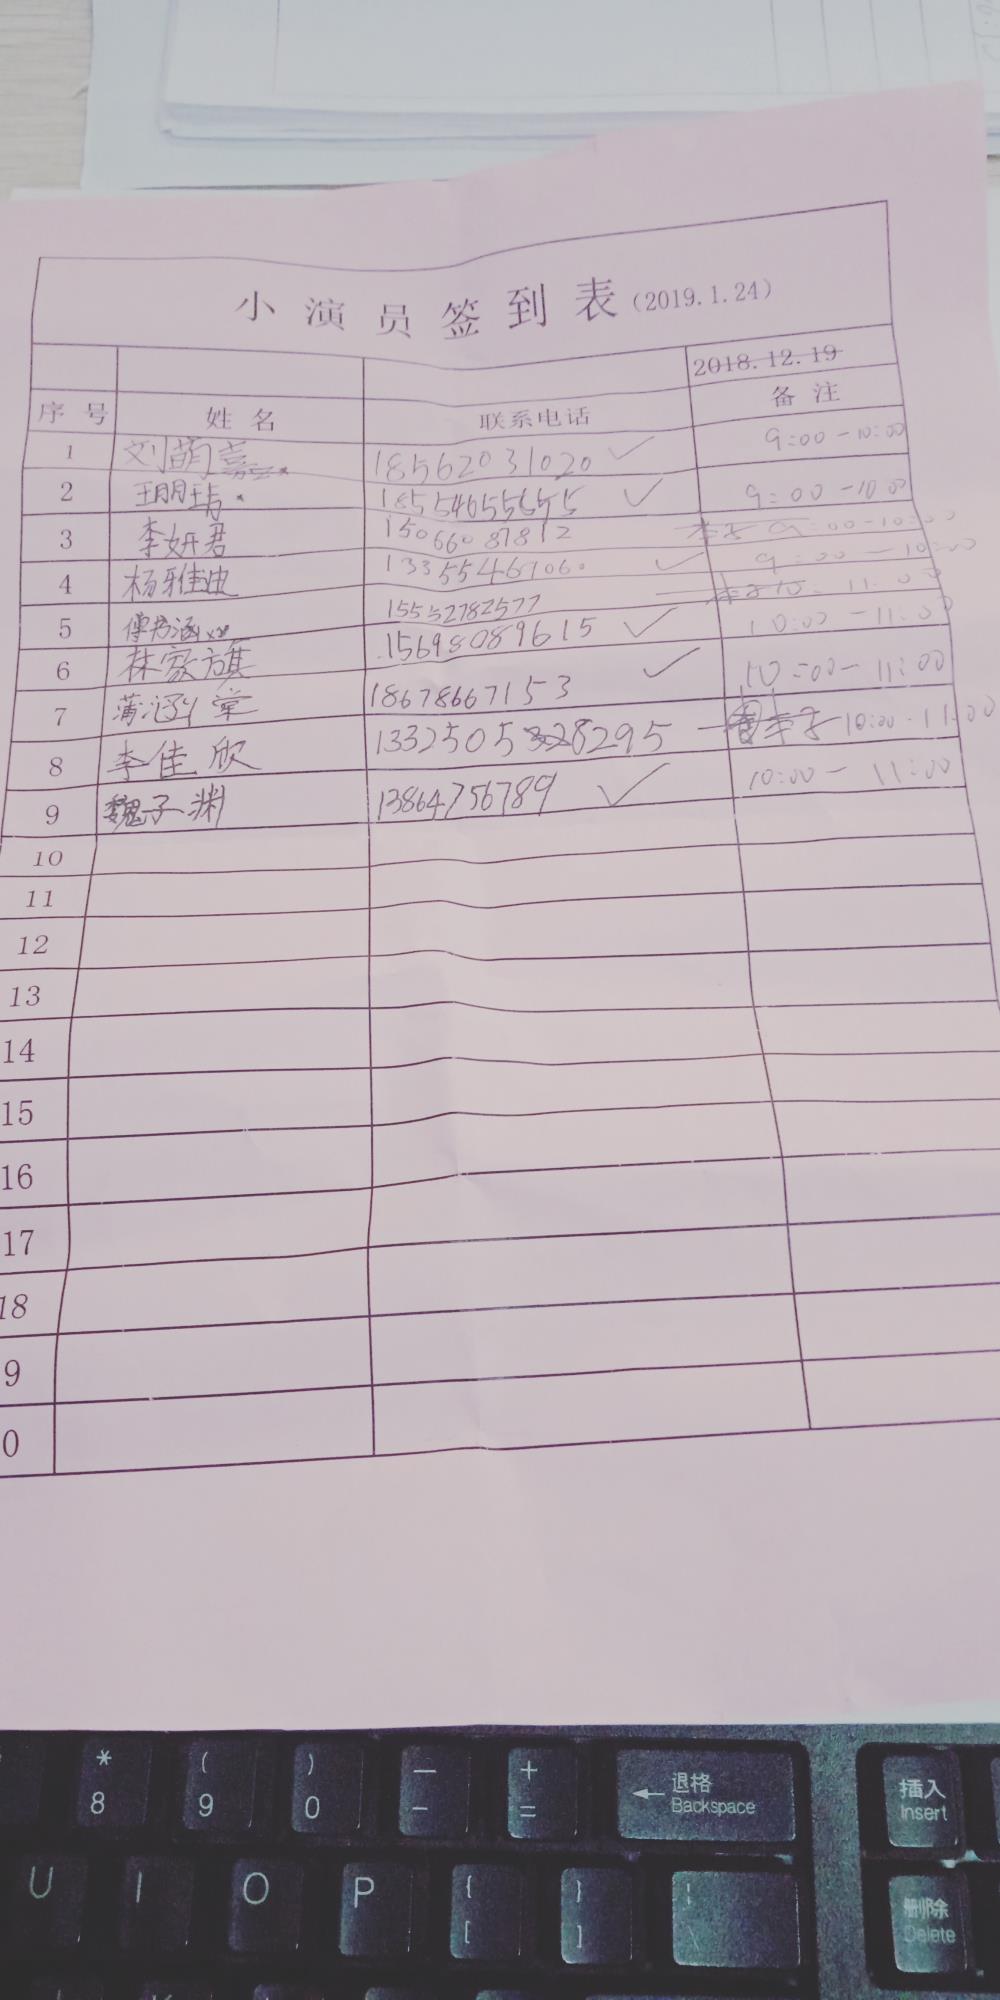 小演员签到表(2019.1.24)
2018.12.19
序号 姓名 联系电话 备注
1 刘萌嘉 18562031020 ✓ 9:00-10:00
2 18554655655 ✓ 9:00-10:00
3 李妍君 15066087812 9:00-10:00
4 杨雅迪 13355467060 ✓ 9:00-10:00
15552782577 11:00
5 15698089615 ✓ 10:00-11:00
6 林家旗 18678667153 ✓ 10:00-11:00
7 蒲涵
8 李佳欣 8295 10:00-11:00
9 魏子渊 13864756789 ✓ 10:00-11:00
10
11
12
13
14
15
16
17
18
9
0
* ( ) — +
8 9 0 - =
退格
Backspace
插入
Insert
U I O P { }
[ ]
删除
Delete